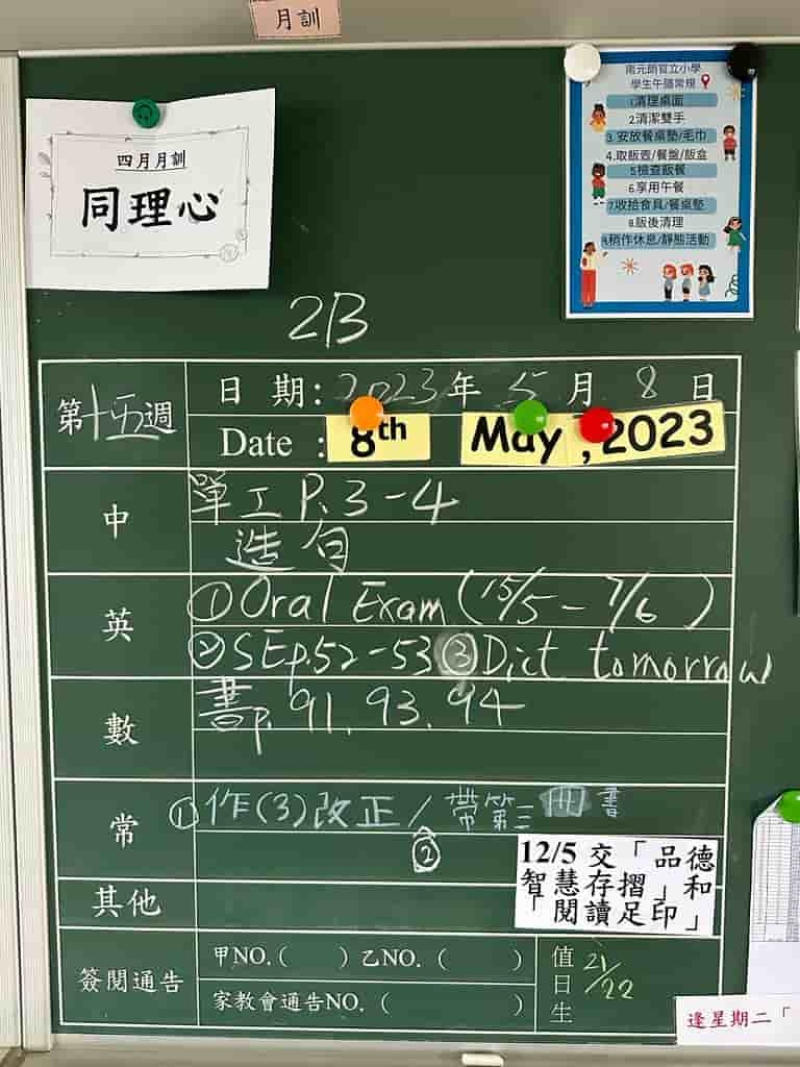 月訓
四月月訓
同理心
南元朗官立小學
學生午膳常規
1.清理桌面
2.清潔雙手
3.安放餐桌墊/毛巾
4.取飯壺/餐盤/飯盒
5.檢查飯餐
6.享用午餐
7.收拾食具/餐桌墊
8.飯後清理
9.稍作休息/靜態活動
2B
第十五週
日 期: 2023 年 5 月 8 日
Date : 8th May , 2023
中
單工 P. 3-4
造句
英
① Oral Exam (15/5 - 7/6 )
② SE p.52-53 ③ Dict tomorrow
數
書p. 91, 93, 94
常
① 作(3)改正 / 帶第三冊書
②
其他
12/5 交「品德
智慧存摺」和
「閱讀足印」
簽閱通告
甲NO. ( ) 乙NO. ( )
家教會通告NO. ( )
值日生
21/22
逢星期二「